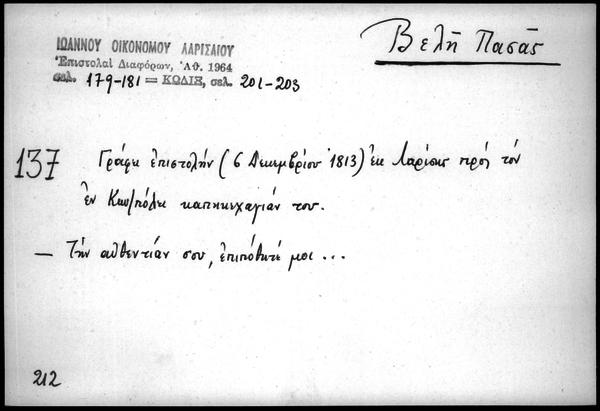 Βελῆ Πασᾶς
ΙΩΑΝΝΟΥ ΟΙΚΟΝΟΜΟΥ ΛΑΡΙΣΑΙΟΥ
Ἐπιστολαὶ Διαφόρων, Ἀθ. 1964
σελ. 179-181 = ΚΩΔΙΞ, σελ. 201-203
137 Γράφει ἐπιστολήν (6 Δεκεμβρίου 1813) ἐκ Λαρίσης πρός τόν
ἐν Κων/πόλει καπικεχαγιάν του.
— Τήν αὐθεντίαν σου, ἐπιπόθητέ μοι ...
212